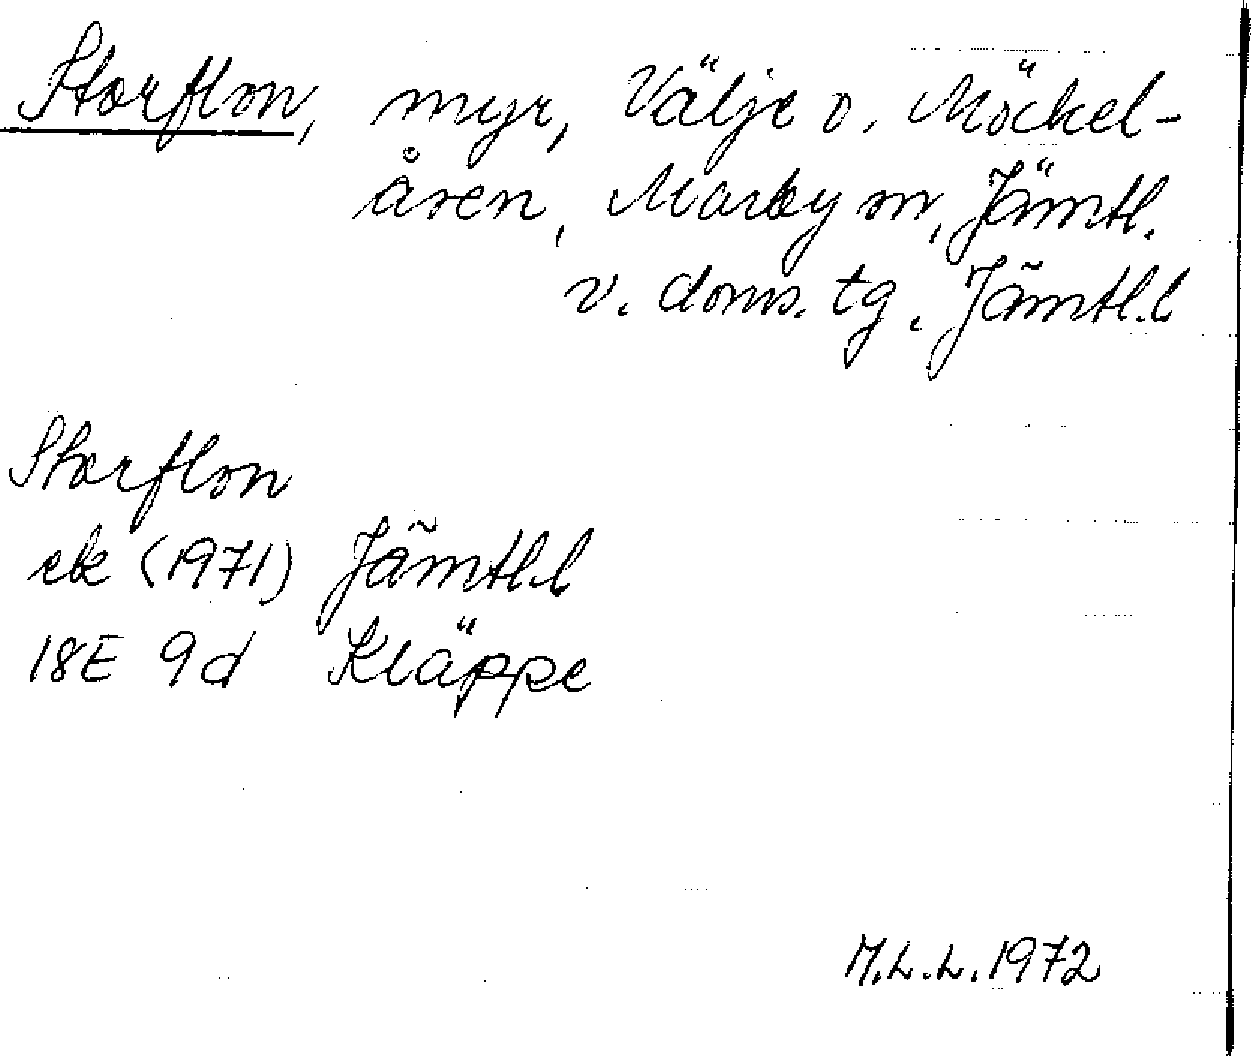 Storflon, myr, Välje o. Möckel-
åsen, Marby sn, Jämtl.
v. doms. tg. Jämtl.l
Storflon
ek (1971) Jämtl.l
18E 9d Kläppe
M.L.L. 1972